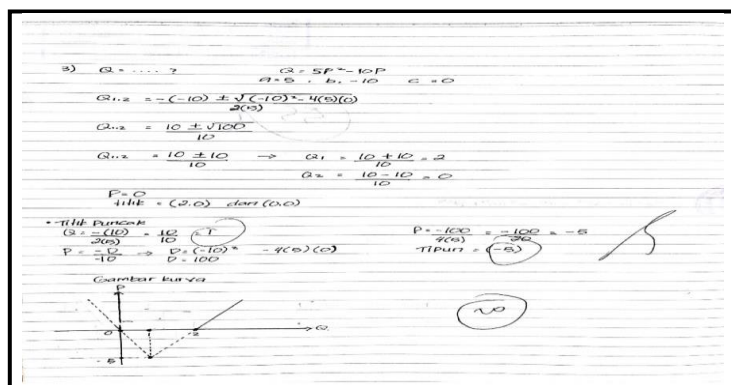 3) Q = ..... ? Q = 5P² - 10P
a = 5 , b. -10 c = 0
Q1.2 = -(-10) ± √(-10)² - 4(5)(0)
2(5)
Q1.2 = 10 ± √100
10
Q1.2 = 10 ± 10 → Q1 = 10 + 10 = 2
10 10
Q2 = 10 - 10 = 0
10
P = 0
titik = (2.0) dan (0.0)
• Titik Puncak
Q = -(10) = 10 = 1
2(5) 10
P = -D → D = (-10)² - 4(5)(0)
-10 D = 100
P = -100 = -100 = -5
4(5) 20
Tipun = (-5)
Gambar kurva
P
0 2 Q
-5
20